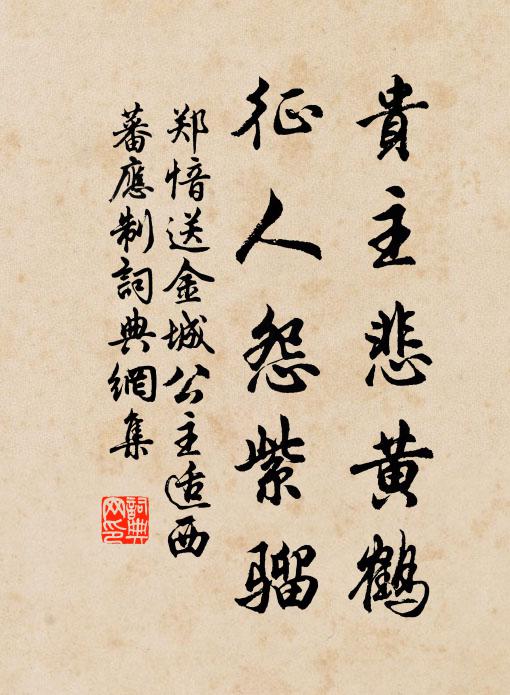 貴主悲黄鶴
征人怨紫骝
郑愔送金城公主适西
蕃應制詞典網集
詞典網印